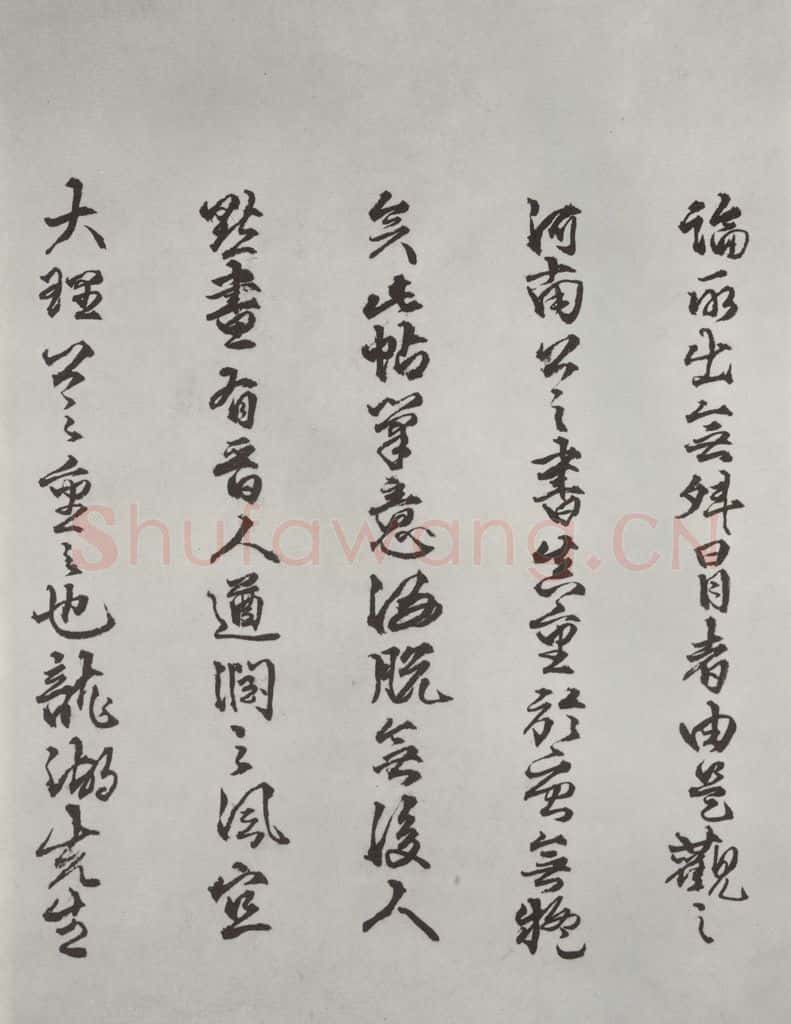 論所出無舛冒者由是觀之
河南公之書真重於無疑
矣此帖筆意洒脫無後人
點畫有晉人遒潤之風宜
大理公之重之也龍湖先生
Shufawang.CN